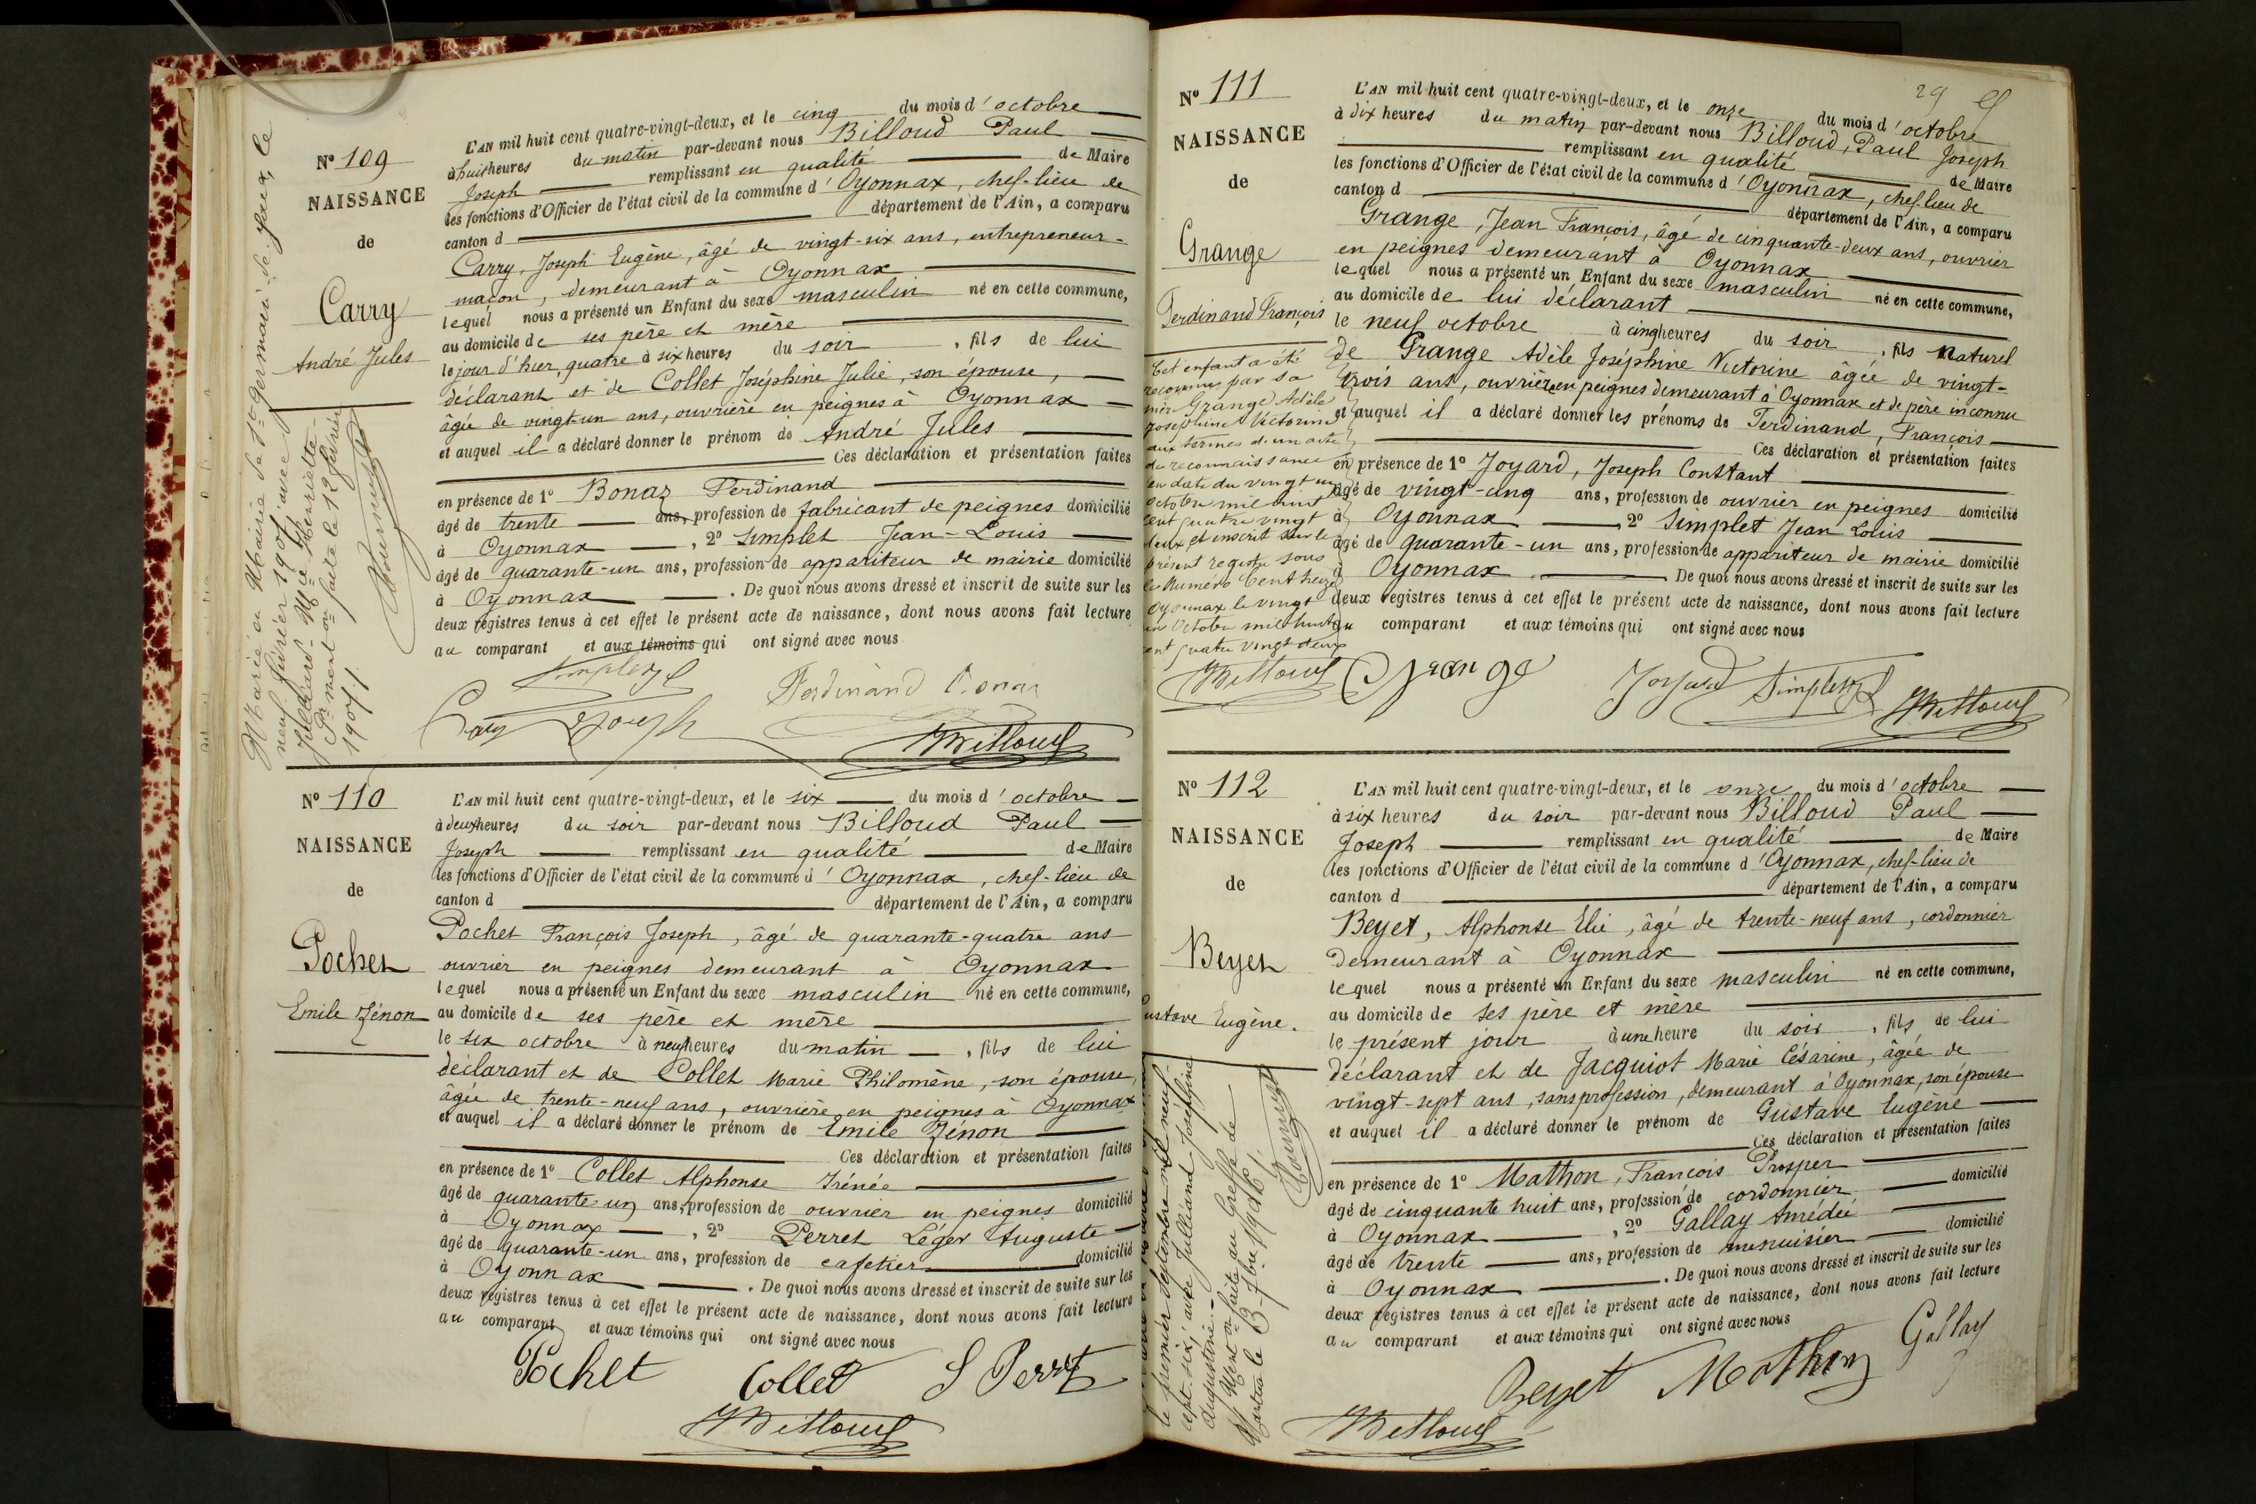 Nº 109
NAISSANCE
de
Carry
André Jules
Marié à la Mairie de St Germain de Joux, le
neuf février 1907, avec
Juillard Mie Henriette
Pr mention faite le 12 février
1907.
L'AN mil huit cent quatre-vingt-deux, et le cinq du mois d'octobre
à huit heures du matin par-devant nous Billoud Paul
Joseph remplissant en qualité de Maire
les fonctions d'Officier de l'état civil de la commune d'Oyonnax, chef-lieu de
canton d département de l'Ain, a comparu
Carry, Joseph Eugène, âgé de vingt-six ans, entrepreneur-
maçon, demeurant à Oyonnax
lequel nous a présenté un Enfant du sexe masculin né en cette commune,
au domicile de ses père et mère
le jour d'hier, quatre à six heures du soir, fils de lui
déclarant et de Collet Joséphine Julie, son épouse,
âgée de vingt-un ans, ouvrière en peignes à Oyonnax
et auquel il a déclaré donner le prénom de André Jules
Ces déclaration et présentation faites
en présence de 1º Bonaz Ferdinand
âgé de trente ans, profession de fabricant de peignes domicilié
à Oyonnax, 2º Simplet Jean-Louis
âgé de quarante-un ans, profession de appariteur de mairie domicilié
à Oyonnax. De quoi nous avons dressé et inscrit de suite sur les
deux registres tenus à cet effet le présent acte de naissance, dont nous avons fait lecture
au comparant et aux témoins qui ont signé avec nous
Simplet
Ferdinand Bonaz
Carry Joseph
Billoud
Nº 110
NAISSANCE
de
Pochet
Emile Zénon
L'AN mil huit cent quatre-vingt-deux, et le six du mois d'octobre
à deux heures du soir par-devant nous Billoud Paul
Joseph remplissant en qualité de Maire
les fonctions d'Officier de l'état civil de la commune d'Oyonnax, chef-lieu de
canton d département de l'Ain, a comparu
Pochet François Joseph, âgé de quarante-quatre ans
ouvrier en peignes demeurant à Oyonnax
lequel nous a présenté un Enfant du sexe masculin né en cette commune,
au domicile de ses père et mère
le six octobre à neuf heures du matin, fils de lui
déclarant et de Collet Marie Philomène, son épouse,
âgée de trente-neuf ans, ouvrière en peignes à Oyonnax
et auquel il a déclaré donner le prénom de Emile Zénon
Ces déclaration et présentation faites
en présence de 1º Collet Alphonse Irénée
âgé de quarante-un ans, profession de ouvrier en peignes domicilié
à Oyonnax, 2º Perret Léger Auguste
âgé de quarante-un ans, profession de cafetier domicilié
à Oyonnax. De quoi nous avons dressé et inscrit de suite sur les
deux registres tenus à cet effet le présent acte de naissance, dont nous avons fait lecture
au comparant et aux témoins qui ont signé avec nous
Pochet Collet L Perret
Billoud
29
Nº 111
NAISSANCE
de
Grange
Ferdinand François
Cet enfant a été
reconnu par sa
mère Grange Adèle
Joséphine Victorine
aux termes d'un acte
de reconnaissance
en date du vingt un
octobre mil huit
cent quatre vingt
deux et inscrit sur le
présent registre sous
le Numéro Cent treize
Oyonnax le vingt
un Octobre mil huit
cent quatre vingt deux
Billoud
L'AN mil huit cent quatre-vingt-deux, et le onze du mois d'octobre
à dix heures du matin par-devant nous Billoud, Paul Joseph
remplissant en qualité de Maire
les fonctions d'Officier de l'état civil de la commune d'Oyonnax, chef-lieu de
canton d département de l'Ain, a comparu
Grange, Jean François, âgé de cinquante-deux ans, ouvrier
en peignes demeurant à Oyonnax
lequel nous a présenté un Enfant du sexe masculin né en cette commune,
au domicile de lui déclarant
le neuf octobre à cinq heures du soir, fils naturel
de Grange Adèle Joséphine Victorine âgée de vingt-
trois ans, ouvrière en peignes demeurant à Oyonnax et de père inconnu
et auquel il a déclaré donner les prénoms de Ferdinand, François
Ces déclaration et présentation faites
en présence de 1º Joyard, Joseph Constant
âgé de vingt-cinq ans, profession de ouvrier en peignes domicilié
à Oyonnax 2º Simplet Jean Louis
âgé de quarante-un ans, profession de appariteur de mairie domicilié
à Oyonnax. De quoi nous avons dressé et inscrit de suite sur les
deux registres tenus à cet effet le présent acte de naissance, dont nous avons fait lecture
au comparant et aux témoins qui ont signé avec nous
Grange Joyard Simplet Billoud
Nº 112
NAISSANCE
de
Beyet
Gustave Eugène.
le premier septembre mil neuf-
cent six, avec Julliand Joséphine
Augustine.
Ment on faite au Greffe de
Nantua le 3 7bre 1906.
L'AN mil huit cent quatre-vingt-deux, et le onze du mois d'octobre
à six heures du soir par-devant nous Billoud Paul
Joseph remplissant en qualité de Maire
les fonctions d'Officier de l'état civil de la commune d'Oyonnax, chef-lieu de
canton d département de l'Ain, a comparu
Beyet, Alphonse Élie, âgé de trente-neuf ans, cordonnier
demeurant à Oyonnax
lequel nous a présenté un Enfant du sexe masculin né en cette commune,
au domicile de ses père et mère
le présent jour à une heure du soir, fils de lui
déclarant et de Jacquiot Marie Césarine, âgée de
vingt-sept ans, sans profession, demeurant à Oyonnax, son épouse
et auquel il a déclaré donner le prénom de Gustave Eugène
Ces déclaration et présentation faites
en présence de 1º Mathon, François Prosper
âgé de cinquante huit ans, profession de cordonnier domicilié
à Oyonnax, 2º Gallay Amédée
âgé de trente ans, profession de menuisier domicilié
à Oyonnax. De quoi nous avons dressé et inscrit de suite sur les
deux registres tenus à cet effet le présent acte de naissance, dont nous avons fait lecture
au comparant et aux témoins qui ont signé avec nous
Beyet Mathon Gallay
Billoud